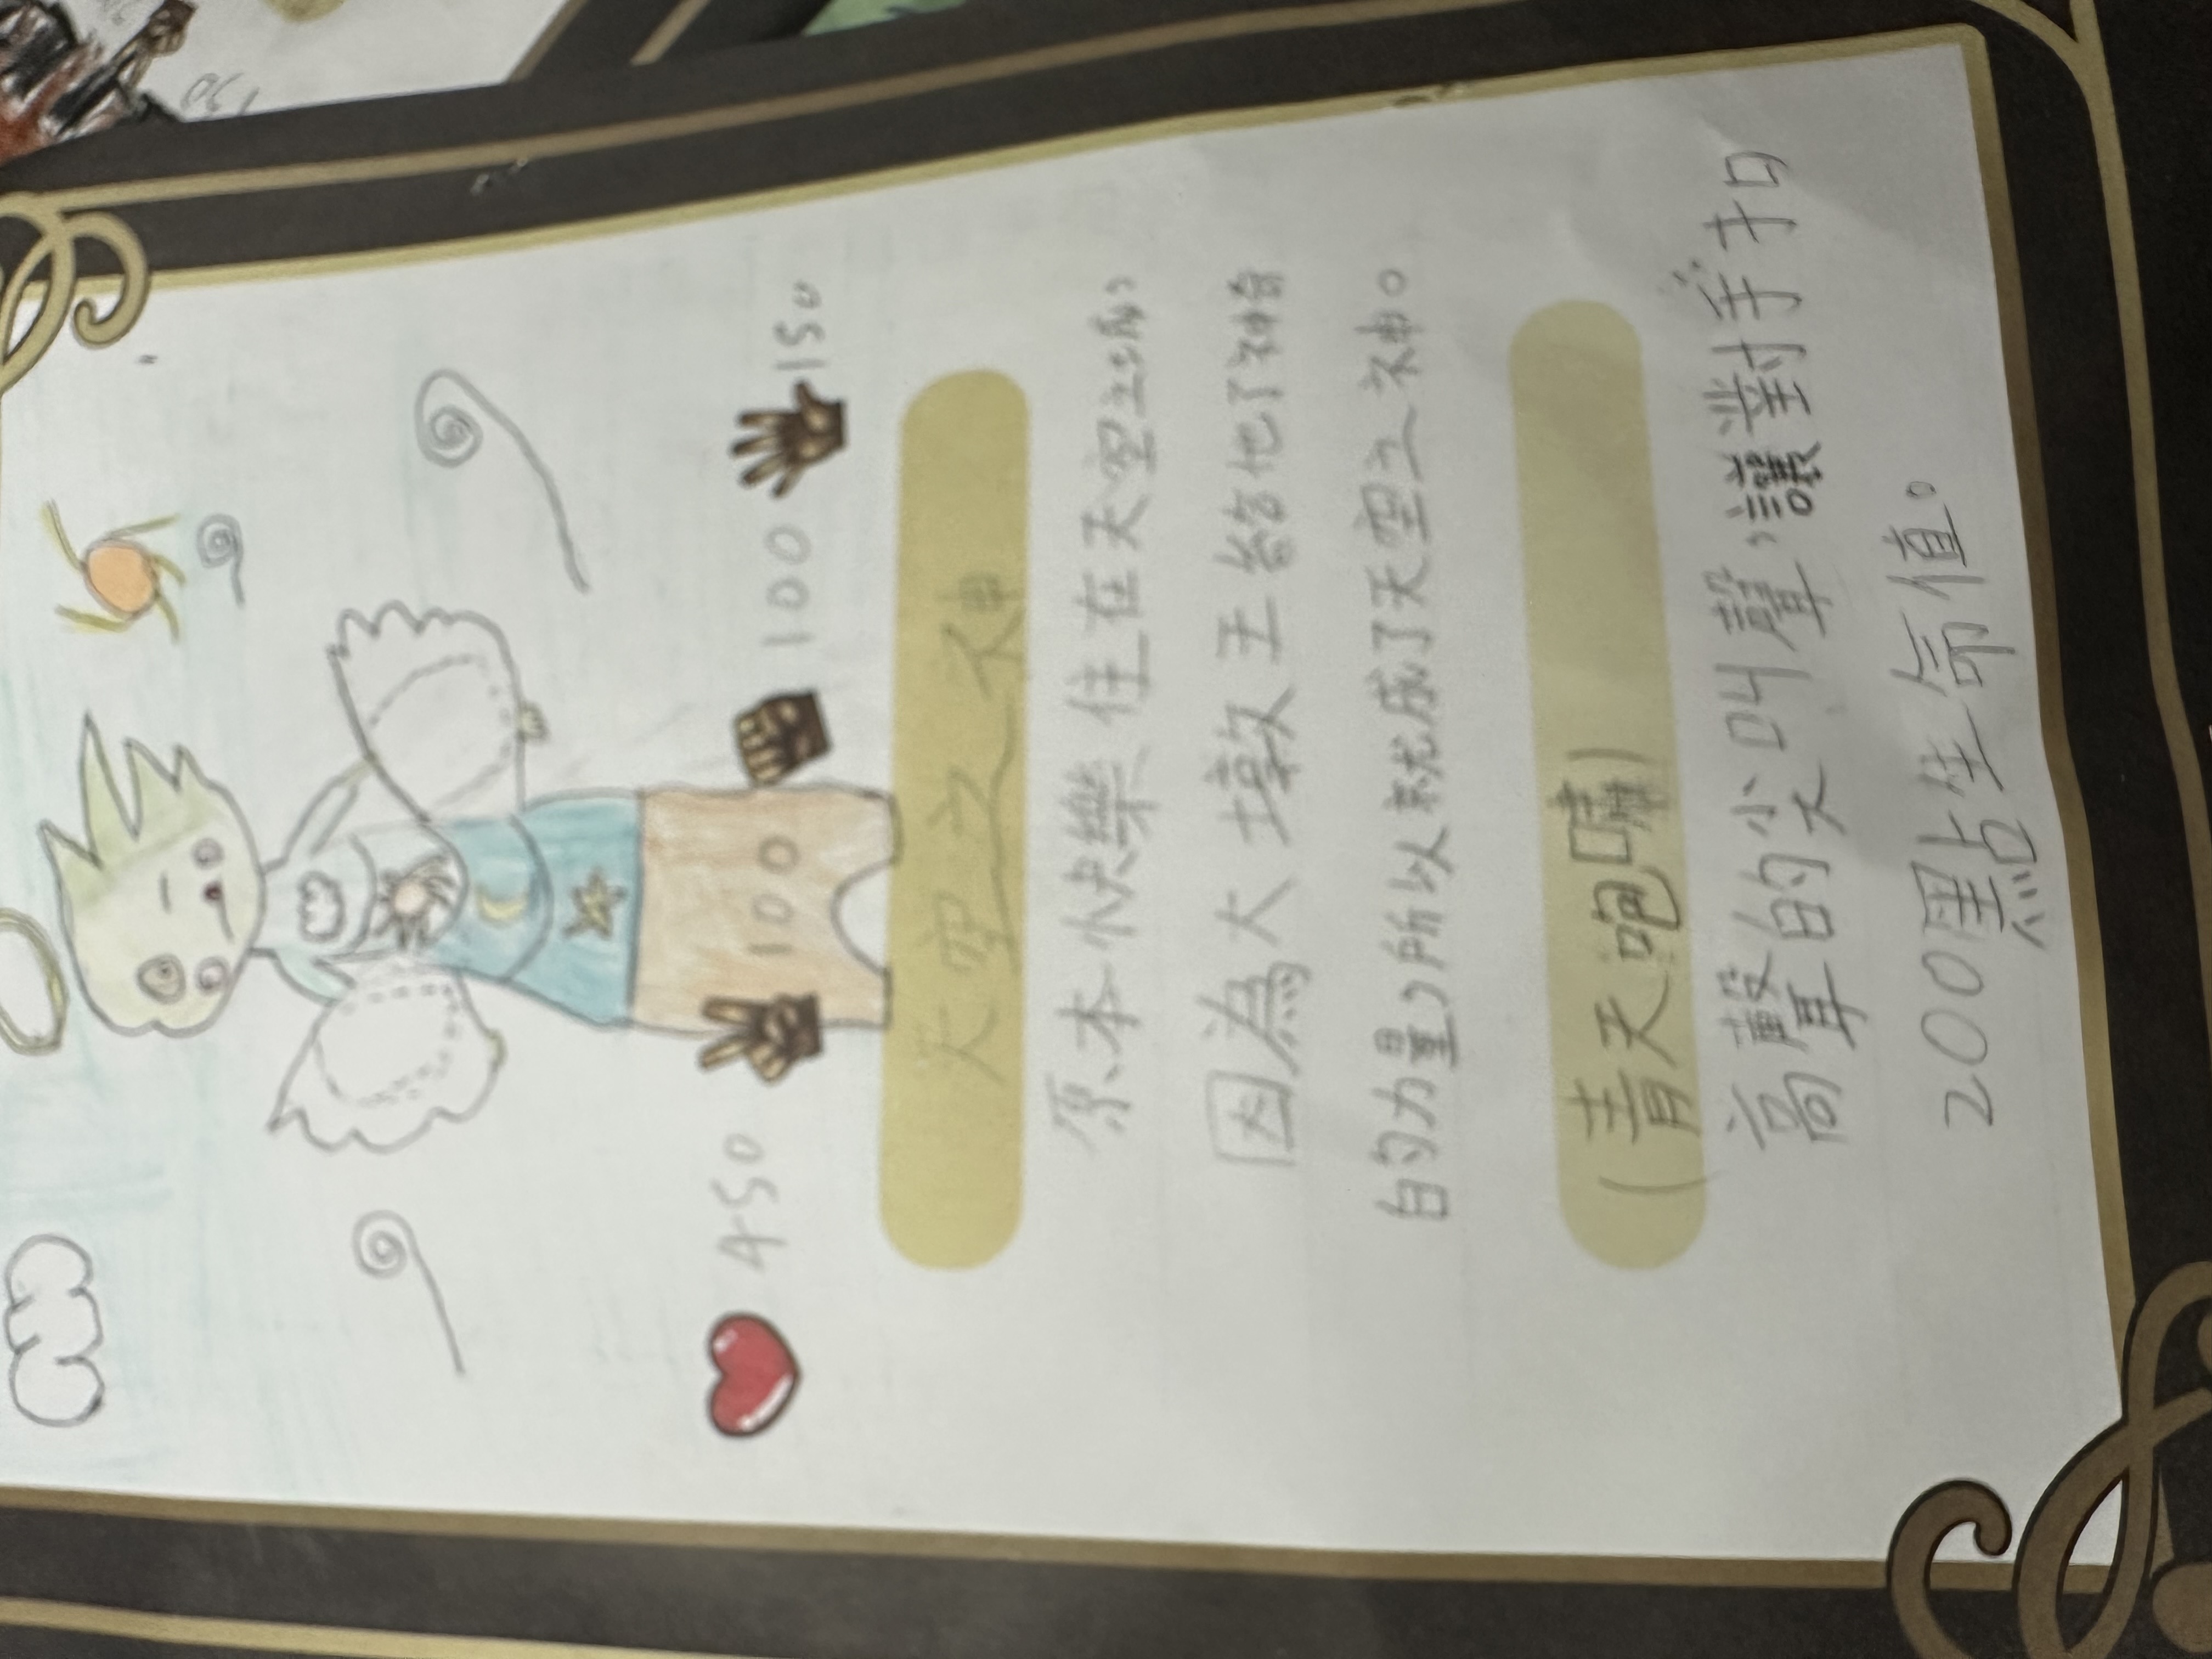 450 100 100 150
天空之神
原本快樂住在天空之城,
因為大墩王給他了神秘
的力量,所以就成了天空之神。
(青天咆嘯)
高聲的尖叫聲,讓對手扣
200點生命值。